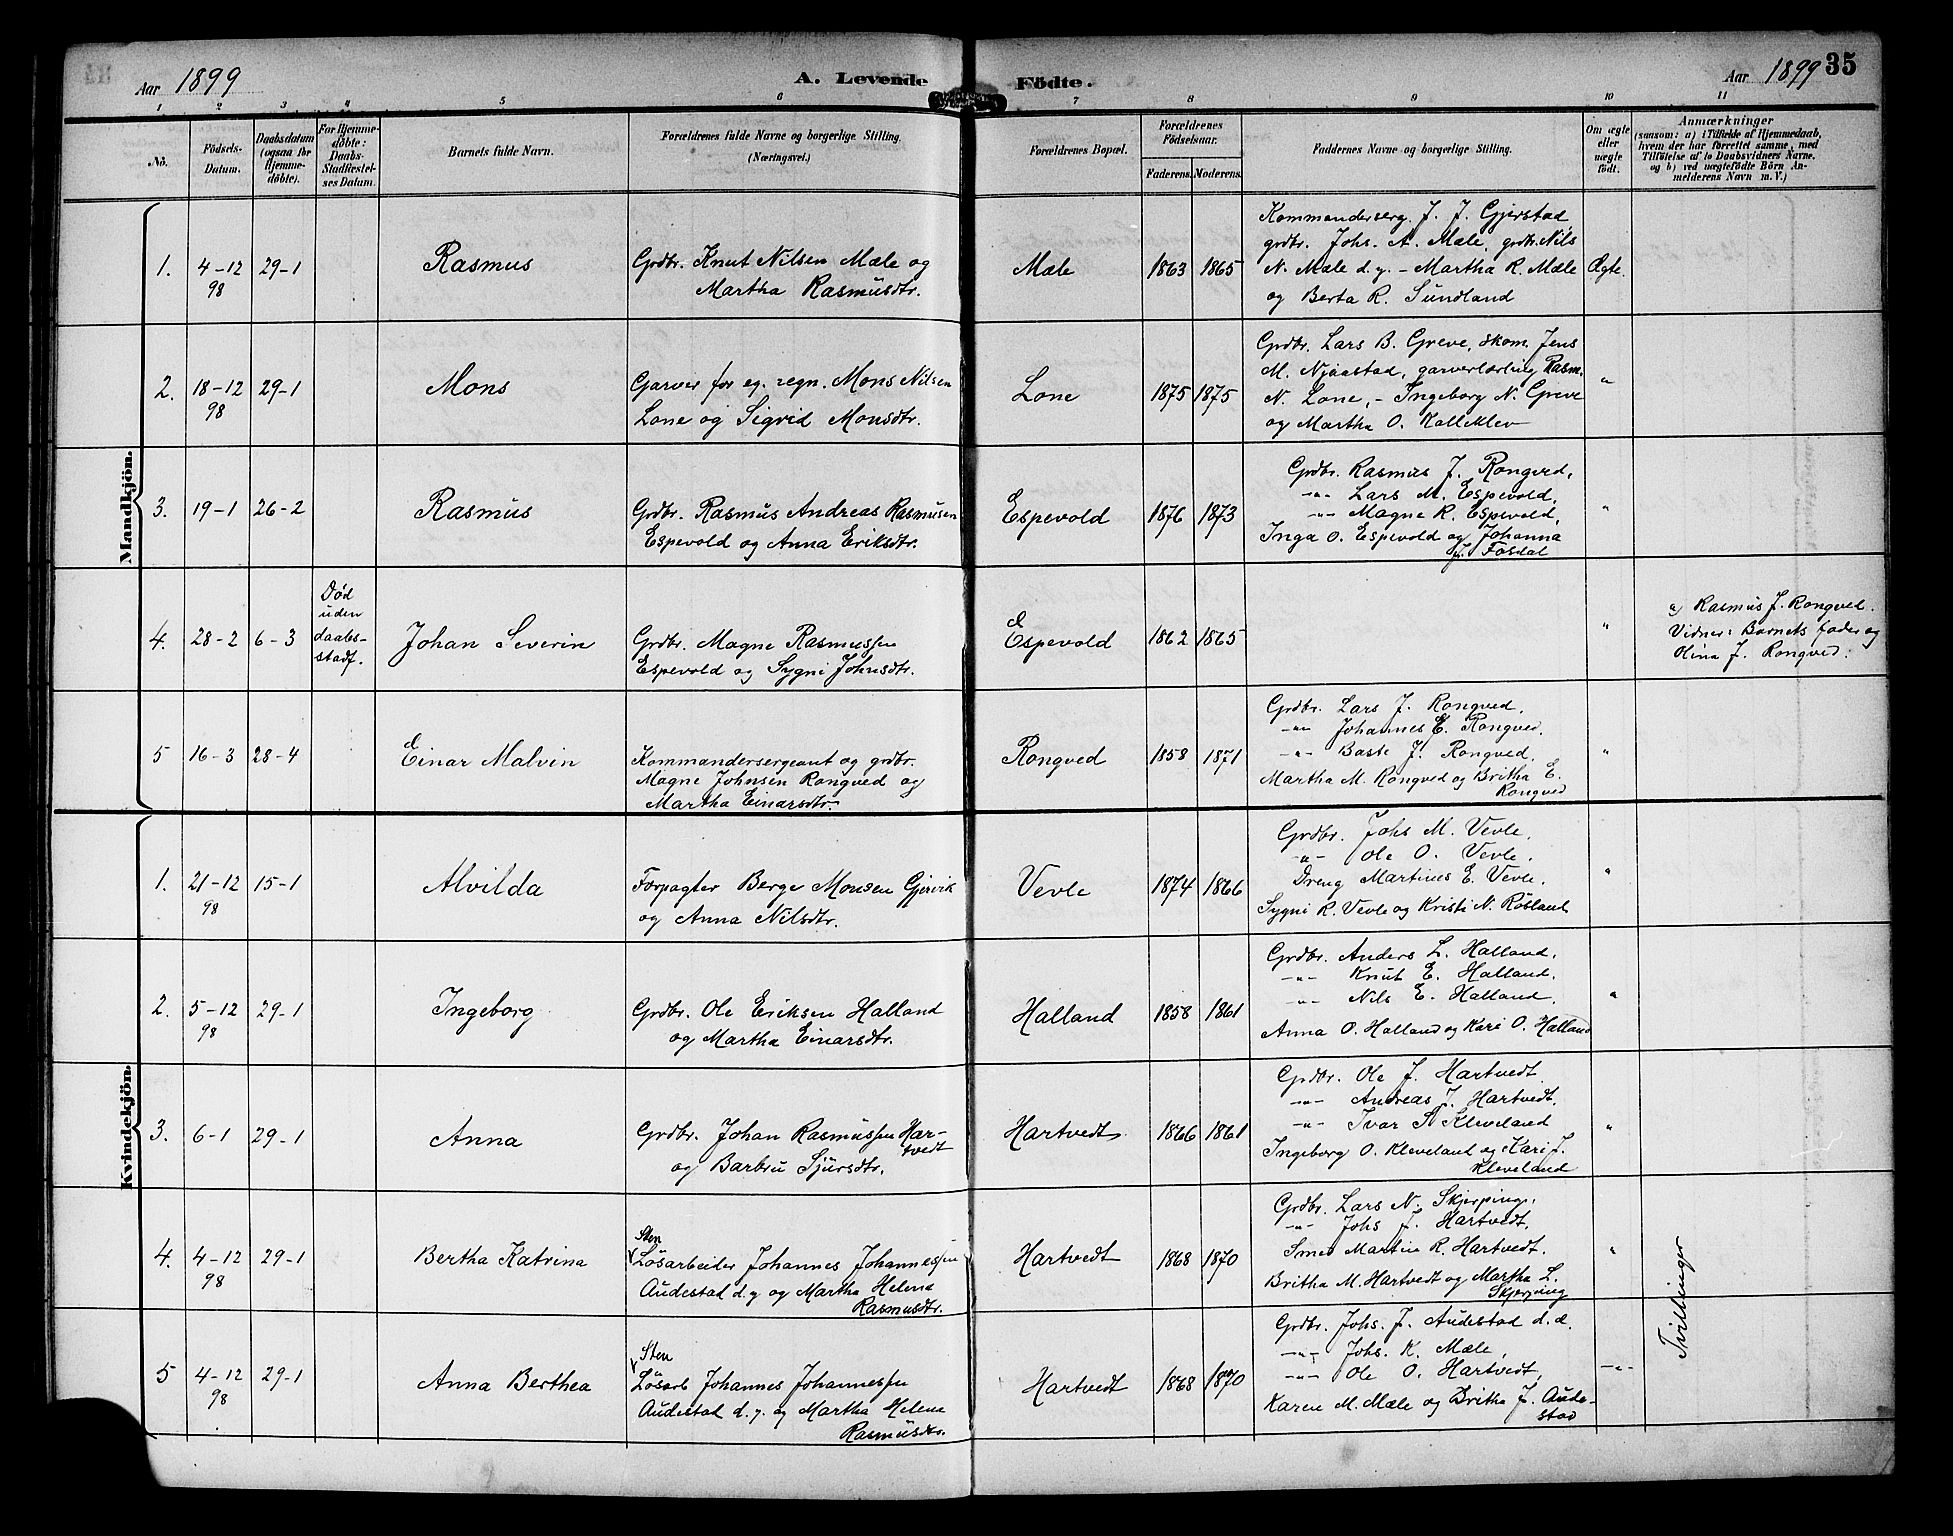 Aar 1899
A. Levende Födte.
Aar 1899 35
1 2 3 4 5 6 7 8 9 10 11
No.
Födsels-Datum.
Daabsdatum (ogsaa för Hjemme-döbte).
For Hjemme-döbte: Daabs-Stadfæstel-ses Datum.
Barnets fulde Navn.
Forældrenes fulde Navne og borgerlige Stilling.
(Næringsvei.)
Forældrenes Bopæl.
Forældrenes Födselsaar.
Faderens. Moderens.
Faddernes Navne og borgerlige Stilling.
Om ægte eller uægte födt.
Anmærkninger
(saasom: a) i Tilfælde af Hjemmedaab,
hvem der har forrettet samme, med
Tilföielse af to Daabsvidners Navne.
og b) ved uægtefödte Börn An-
melderens Navn m. V.)
Mandkjön.
1. 4-12 98 29-1 Rasmus
Grdbr. Knut Nilsen Mæle og
Martha Rasmusdtr.
Mæle 1863 1865
Kommanderserg. J. J. Gjerstad
grdbr. Johs. A. Mæle, grdbr. Nils
N. Mæle d. y. – Martha R. Mæle
og Berta R. Sundland
Ægte.
2. 18-12 98 29-1 Mons
Garver for eg. regn. Mons Nilsen
Lone og Sigrid Monsdtr.
Lone 1875 1875
Grdbr. Lars B. Greve, skom. Jens
M. Njaastad, garverlærling Rasm.
N. Lone, – Ingeborg N. Greve
og Martha O. Kalleklev
"
3. 19-1 26-2 Rasmus
Grdbr. Rasmus Andreas Rasmusen
Espevold og Anna Eriksdtr.
Espevold 1876 1873
Grdbr. Rasmus J. Rongved,
-"- Lars M. Espevold,
-"- Magne R. Espevold,
Inga O. Espevold og Johanna
J. Fosdal
"
4. 28-2 6-3 Död uden daabs-stadf. Johan Severin
Grdbr. Magne Rasmussen
Espevold og Sygni Johnsdtr.
Espevold 1862 1865
"
a) Rasmus J. Rongved.
Vidner: Barnets fader og
Olina J. Rongved.
5 16-3 28-4 Einar Malvin
Kommandersergeant og grdbr.
Magne Johnsen Rongved og
Martha Einarsdtr.
Rongved 1858 1871
Grdbr. Lars J. Rongved,
-"- Johannes E. Rongved,
-"- Baste J. Rongved,
Martha M. Rongved og Britha E.
Rongved
"
Kvindekjön.
1. 21-12 98 15-1 Alvilda
Forpagter Berge Monsen Gjervik
og Anna Nilsdtr.
Vevle 1874 1866
Grdbr. Johs M. Vevle,
-"- Ole O. Vevle,
Dreng Martines E. Vevle,
Sygni R. Vevle og Kristi N. Rösland
"
2. 5-12 98 29-1 Ingeborg
Grdbr. Ole Eriksen Halland
og Martha Einarsdtr.
Halland 1858 1861
Grdbr. Anders L. Halland,
-"- Knut E. Halland,
-"- Nils E. Halland,
Anna O. Halland og Kari O. Halland
"
3. 6-1 29-1 Anna
Grdbr. Johan Rasmussen Har-
tvedt
og Barbru Sjursdtr.
Hartvedt 1866 1861
Grdbr. Ole J. Hartvedt
-"- Andreas J. Hartvedt,
-"- Ivar S. Kleveland
Ingeborg O. Kleveland og Kari J.
Kleveland
"
4. 4-12 98 29-1 Bertha Katrina
Sten
Lösarbeider Johannes Johannessen
Audestad d. y og Martha Helena
Rasmusdtr.
Hartvedt 1868 1870
Grdbr. Lars N. Skjerping,
-"- Johs J. Hartvedt,
Smed Martin R. Hartvedt.
Britha M. Hartvedt og Martha L.
Skjerping
"
Tvillinger
5 4-12 98 29-1 Anna Berthea
Sten
Lösarb Johannes Johannessen
Audestad d. y. og Martha Helena
Rasmusdtr.
Hartvedt 1868 1870
Grdbr. Johs. J. Audestad d. æ.
-"- Johs. K. Mæle,
-"- Ole O. Hartvedt,
Karen M. Mæle og Britha J. Aude-
stad
-"-